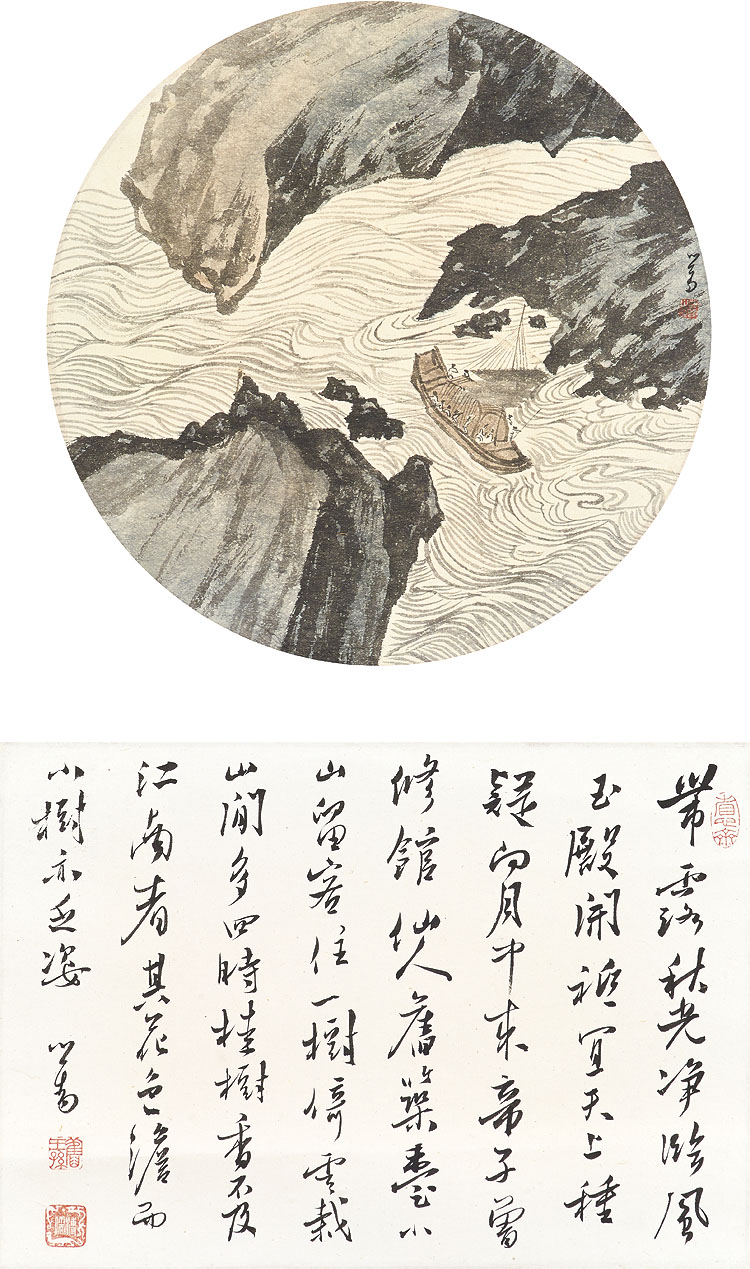 心畬
帶露秋光净臨風
玉殿開祇宜天上種
疑向月中来帝子曾
修館仙人舊築臺小
山留客住一樹倚雲栽
山間多四時桂樹香不及
江南者其花色澹而
小樹亦乏姿 心畬
舊王孫